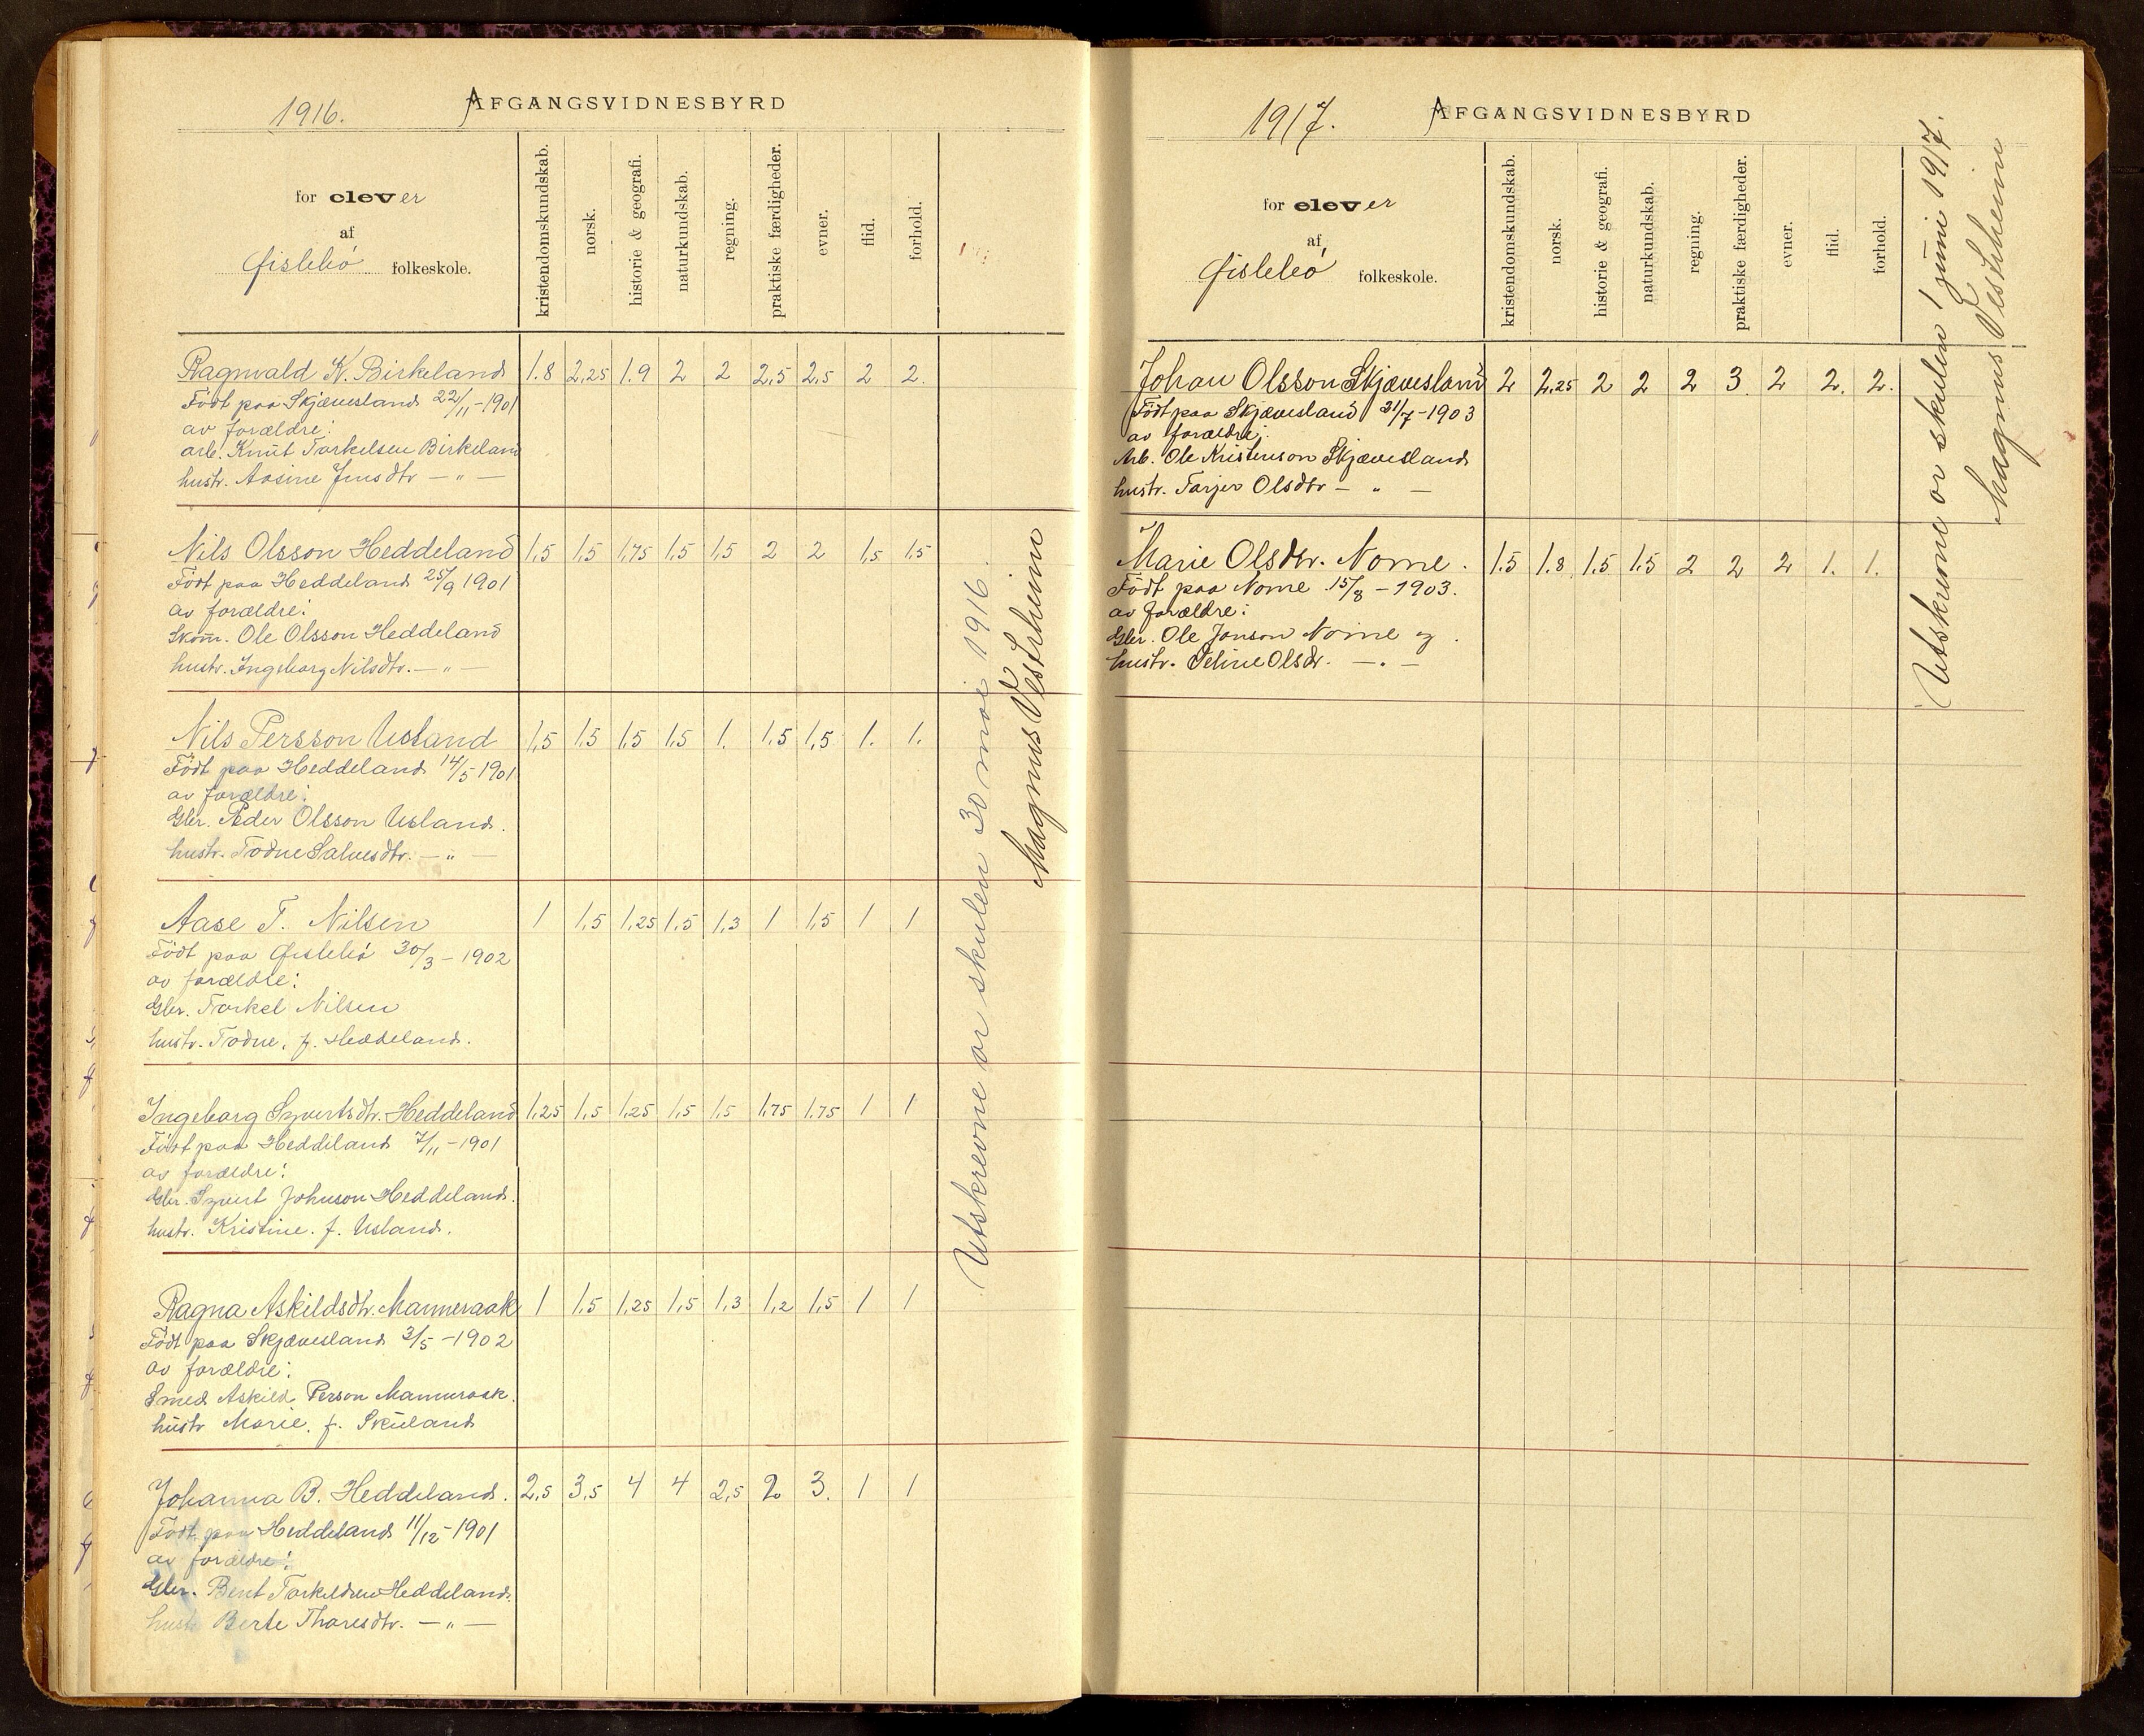 1916.
AFGANGSVIDNESBYRD
for elever
af
Øislebø folkeskole.
kristendomskundskab.
norsk.
historie & geografi.
naturkundskab.
regning.
praktiske færdigheder.
evner.
flid.
forhold.
Ragnvald K. Birkeland 1.8 2,25 1.9 2 2 2,5 2,5 2 2.
Født paa Skjævesland 22/11-1901
av forældre:
arb. Knut Torkelsen Birkeland
hustr. Aasine Jensdtr — „ —
Nils Olsson Heddeland 1,5 1,5 1,75 1,5 1,5 2 2 1,5 1,5
Født paa Heddeland 25/9 1901
av forældre:
Skom. Ole Olsson Heddeland
hustr. Ingeborg Nilsdtr. — „ —
Nils Persson Usland 1,5 1,5 1,5 1,5 1. 1,5 1,5 1. 1.
Født paa Heddeland 14/5-1901
av forældre:
Gbr. Peder Olsson Usland.
hustr. Todne Salvesdtr. — „ —
Aase T. Nilsen 1 1,5 1,25 1,5 1,3 1 1,5 1 1
Født paa Øislebø 30/3-1902
av forældre:
Gbr. Torkel Nilsen
hustr. Todne, f. Heddeland.
Ingeborg Syvertsdtr. Heddeland 1,25 1,5 1,25 1,5 1,5 1,75 1,75 1 1
Født paa Heddeland 7/11-1901
av forældre:
Gbr. Syvert Johnson Heddeland.
hustr. Kristine. f. Usland.
Ragna Askildsdtr. Manneraak 1 1,5 1,25 1,5 1,3 1,2 1,5 1 1
Født paa Skjævesland 3/5-1902
av forældre:
Smed Askild Person Manneraak.
hustr Marie, f. Skuland
Johanna B. Heddeland. 2,5 3,5 4 4 2,5 2 3. 1 1
Født paa Heddeland 11/12-1901
av forældre:
Gbr. Bent Torkeldsen Heddeland.
hustr Berte Tharesdtr. — „ —
Utskrevne or skulen 30 mai 1916.
Magnus Vestrheim
1917.
AFGANGSVIDNESBYRD
for elever
af
Øislebø folkeskole.
kristendomskundskab.
norsk.
historie & geografi.
naturkundskab.
regning.
praktiske færdigheder.
evner.
flid.
forhold.
Johan Olsson Skjævesland 2 2,25 2 2 2 3. 2 2. 2.
Født paa Skjævesland 31/7-1903
av forældre:
Arb. Ole Kristenson Skjævesland
hustr. Tarjer Olsdtr — „ —
Marie Olsdtr. Nome. 1.5 1.8. 1.5 1.5 2 2 2 1. 1.
Født paa Nome 15/8-1903.
av forældre:
Gbr. Ole Jonson Nome og.
hustr. Seline Olsdr. — „ —
Utskrevne or skulen 1 juni 1917.
Magnus Vestrheim